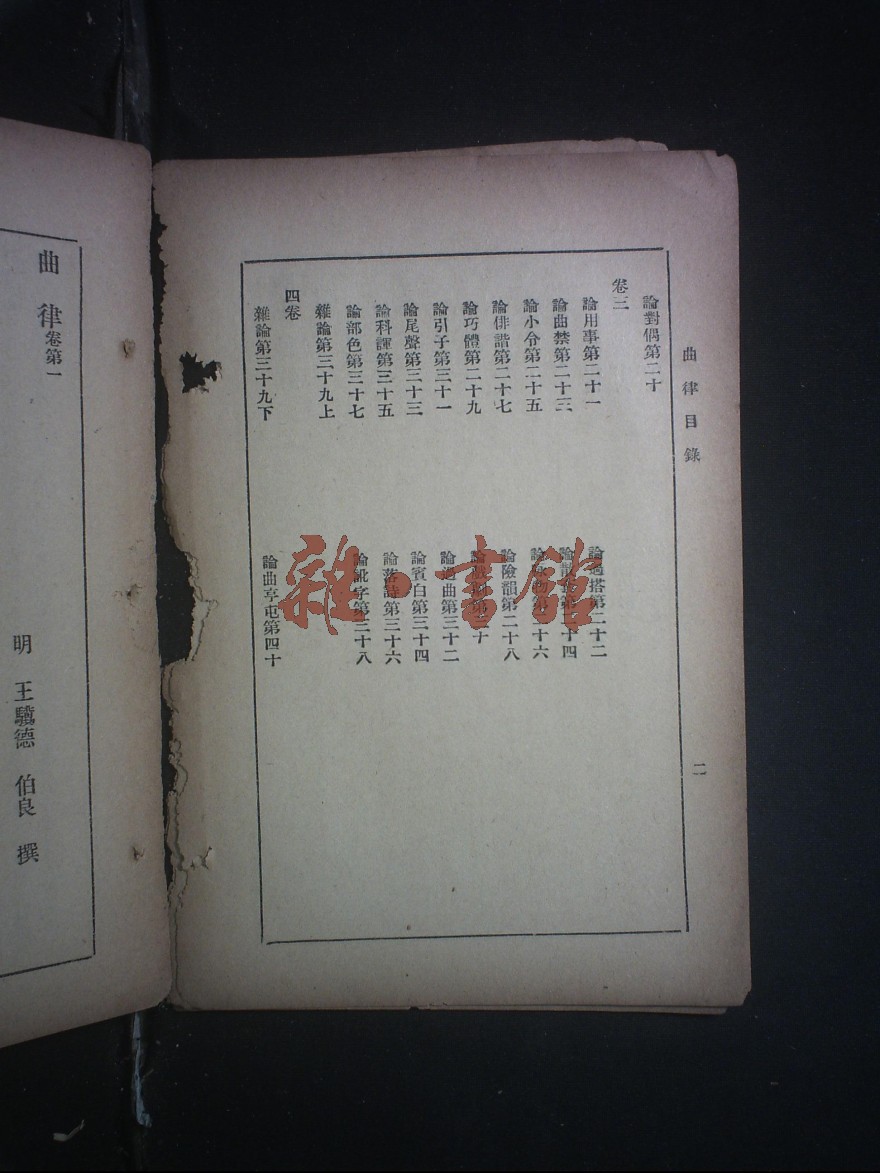 曲律目錄
二
論對偶第二十
卷三
論用事第二十一 論過搭第二十二
論曲禁第二十三 論散套第二十四
論小令第二十五 論詠物第二十六
論俳諧第二十七 論險韻第二十八
論巧體第二十九 論第三十
論引子第三十一 論過曲第三十二
論尾聲第三十三 論賓白第三十四
論科諢第三十五 論落詩第三十六
論部色第三十七 論訛字第三十八
雜論第三十九上
四卷
雜論第三十九下 論曲亨屯第四十
曲律卷第一
明 王驥德 伯良 撰
雜·書館